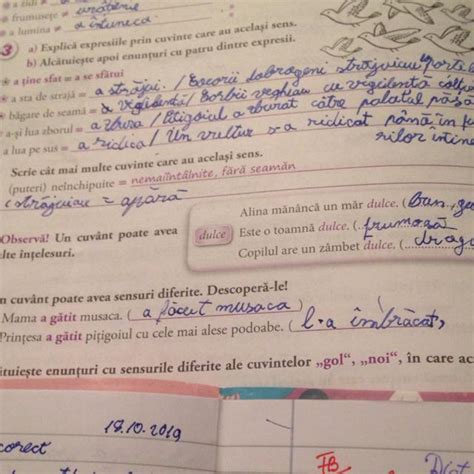 a zidi ≠
frumusețe ≠ urâțenie
a lumina ≠ a întuneca
3 a) Explică expresiile prin cuvinte care au același sens.
b) Alcătuiește apoi enunțuri cu patru dintre expresii.
a ține sfat = a se sfătui
a sta de strajă = a străjui. / Cocorii dobrogeni străjuiau
băgare de seamă = vigilență / Corbii vegheau cu vigilență
a-și lua zborul = a zbura / Pițigoiul a zburat către palatul
a lua pe sus = a ridica / Un vultur s-a ridicat până în
rilor
Scrie cât mai multe cuvinte care au același sens.
(puteri) neînchipuite = nemaiîntâlnite, fără seamăn
străjuiau = apără
Observă! Un cuvânt poate avea
lte înțelesuri.
dulce
Alina mănâncă un măr dulce. (bun,
Este o toamnă dulce. (frumoasă
Copilul are un zâmbet dulce. (drag
n cuvânt poate avea sensuri diferite. Descoperă-le!
Mama a gătit musaca. (a făcut musaca)
Prințesa a gătit pițigoiul cu cele mai alese podoabe. (l-a îmbrăcat,
ituiește enunțuri cu sensurile diferite ale cuvintelor „gol“, „noi“, în care ac
18.10.2019
corect
FB
Dict